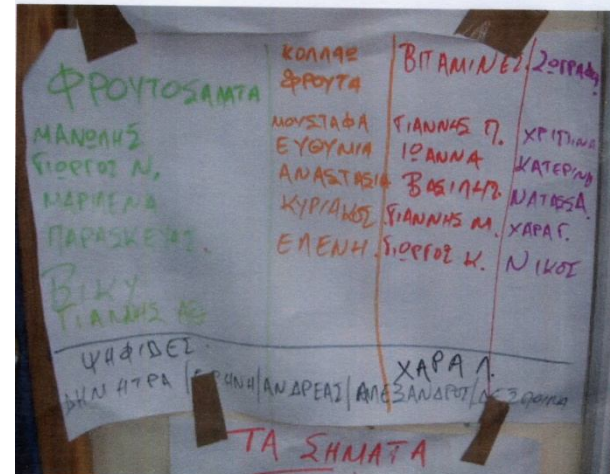 ΦΡΟΥΤΟΣΑΛΑΤΑ
ΜΑΝΩΛΗΣ
ΓΙΩΡΓΟΣ Ν.
ΜΑΡΙΛΕΝΑ
ΠΑΡΑΣΚΕΥΑΣ.
ΒΙΚΥ
ΓΙΑΝΝΗΣ ΑΣ
ΚΟΛΛΑΩ
ΦΡΟΥΤΑ
ΜΟΥΣΤΑΦΑ
ΕΥΘΥΝΙΑ
ΑΝΑΣΤΑΣΙΑ
ΚΥΡΙΑΚΟΣ
ΕΛΕΝΗ.
ΒΙΤΑΜΙΝΕΣ
ΓΙΑΝΝΗΣ Π.
ΙΩΑΝΝΑ
ΒΑΣΙΛΗΣ
ΓΙΑΝΝΗΣ Μ.
ΓΙΩΡΓΟΣ Κ.
ΧΡΙΣΤΙΝΑ
ΚΑΤΕΡΙΝΑ
ΝΑΤΑΣΣΑ
ΧΑΡΑ Γ.
ΝΙΚΟΣ
ΨΗΦΙΔΕΣ.
ΧΑΡΑ Λ.
ΔΗΜΗΤΡΑ / ΕΙΡΗΝΗ / ΑΝΔΡΕΑΣ / ΑΛΕΞΑΝΔΡΟΣ / ΔΕΣΠΟΙΝΑ
ΤΑ ΣΗΜΑΤΑ